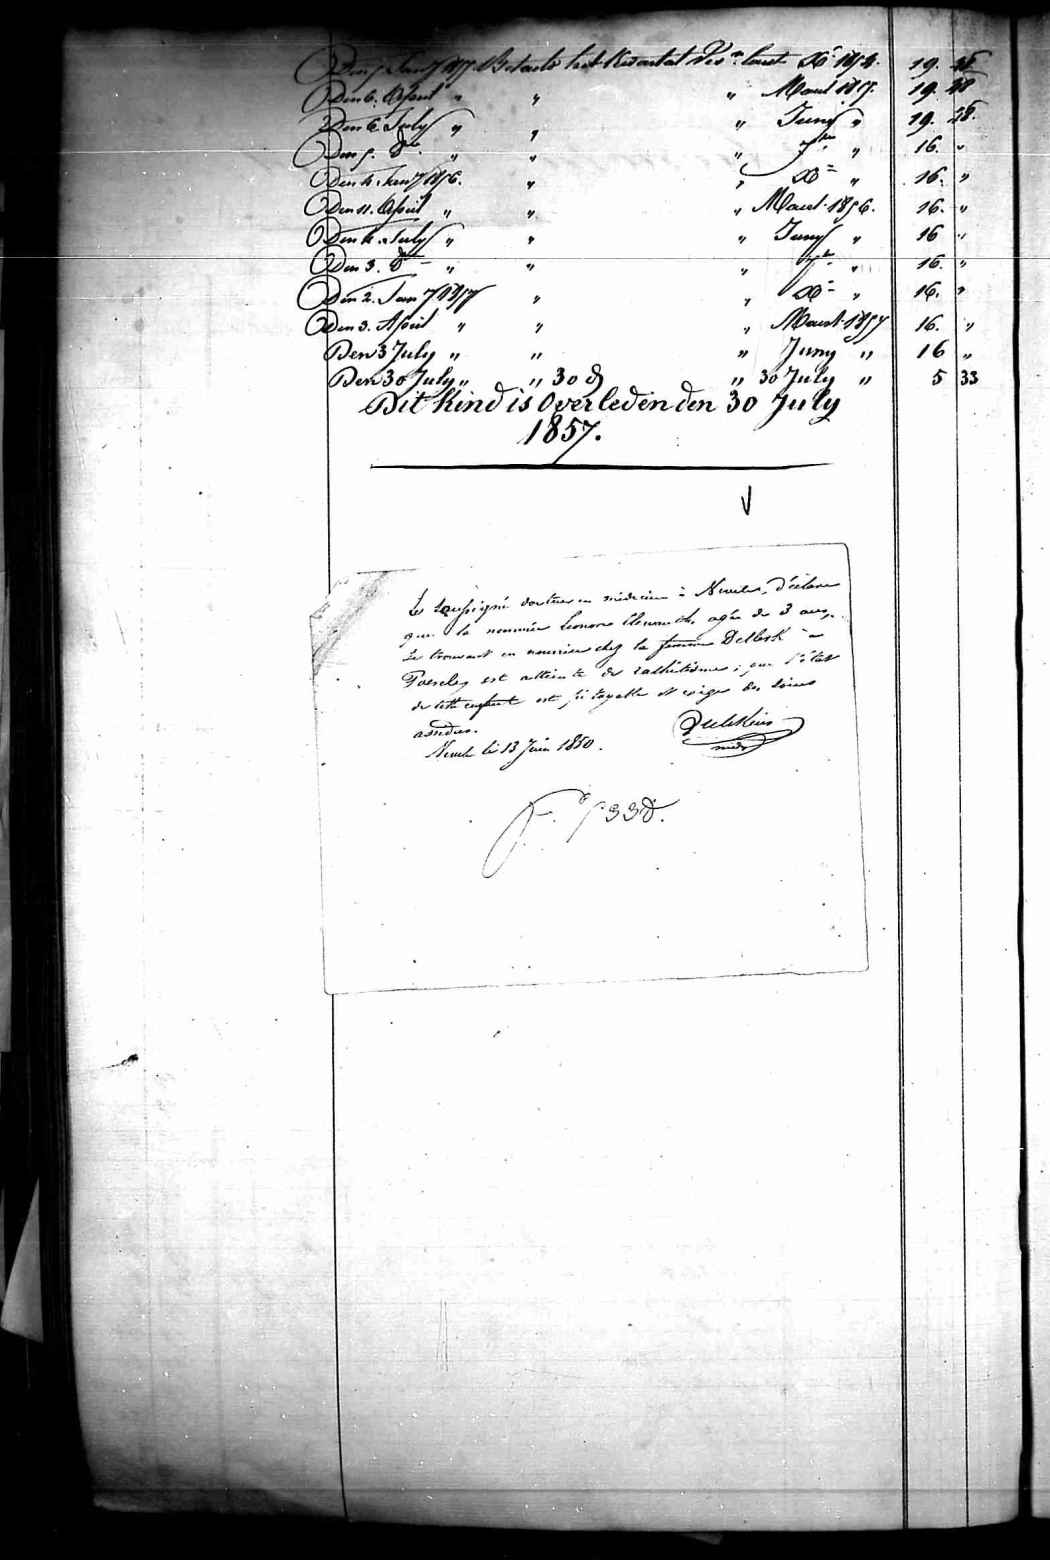 Den 5 Jany 1855 Betaelt het Kwartal Ver. laest Xb 1854. 19. 28
Den 6. April " " " Maert 1855. 19. 28
Den 6 July " " " Juny " 19. 28.
Den 5. 8bre " " " 7bre " 16. "
Den 4. Jany 1856. " " Xbre " 16. "
Den 11. April " " " Maert 1856. 16. "
Den 4. July " " " Juny " 16 "
Den 3. 8bre " " " 7bre " 16. "
Den 2. Jany 1857 " " Xbre " 16. "
Den 3. April " " " Maert 1857 16. "
Den 3 July " " " Juny " 16 "
Den 30 July " " 30 d " 30 July " 5 33
Dit Kind is Overleden den 30 July
1857.
Le soussigné docteur en médecine à Ninove, déclare
que la nommée Leonore agée de 3 ans,
se trouvant en nourrice chez la femme à
est atteinte de rachitisme ; que l'état
de cette enfant est pitoyable et exige des soins
assidus.
le 13 Juin 1850.